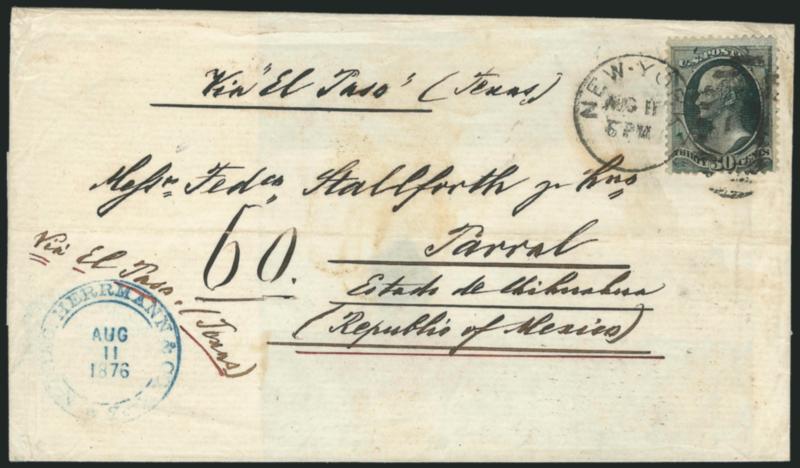 Via "El Paso" (Texas)
NEW-YORK
AUG 11
6 PM
U.S. POSTAGE
THIRTY 30 CENTS
Messrs Fedco Stallforth y Hno
60.
Parral
Estado de Chihuahua
(Republic of Mexico)
Via El Paso. (Texas)
HERRMANN & CO
AUG
11
1876